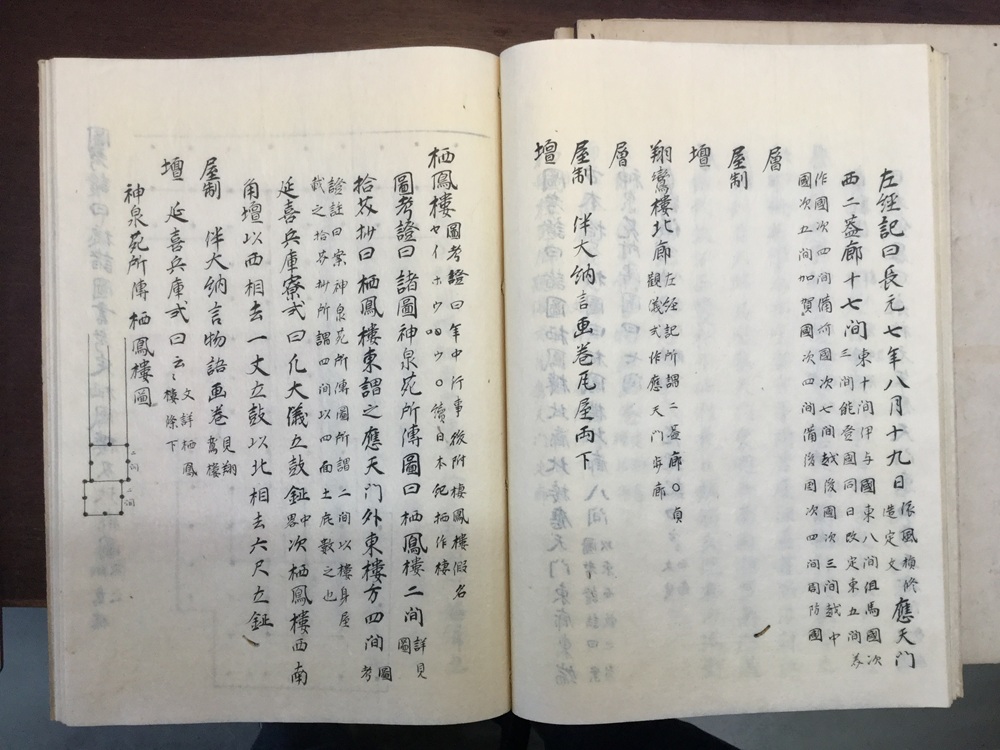 左經記曰長元七年八月十九日依風損修造定文應天门
西二益廊十七间東十间伊与國東八间但馬國次三间能登國同日改定東五间若
作國次四间備前國次七间越後國次三间越中
國次五间加賀國次四间備後國次四间周防國
層
屋制
壇
翔鸞樓北廊左經記所謂二益廊〇貞觀儀式作應天门步廊
層
屋制 伴大納言画巻瓦屋両下
壇
栖鳳樓圖考證曰年中行事後附樓鳳樓假名セイホウロウ〇續日本紀栖作棲
圖考證曰諸圖神泉苑所傳圖曰栖鳳樓二间詳見圖
拾芥抄曰栖鳳樓東謂之應天门外東樓方四间圖考
證註曰案神泉苑所傳圖所謂二间以樓身屋
弐之拾芥抄所謂四间以四面土庇數之也
延喜兵庫寮式曰凢大儀立鼓鉦中畧次栖鳳樓西南
角壇以西相去一丈立鼓以北相去六尺立鉦
屋制 伴大納言物語画巻見翔鸞樓
壇 延喜兵庫式曰云々文詳栖鳳樓條下
神泉苑所傳栖鳳樓圖
二间
二间